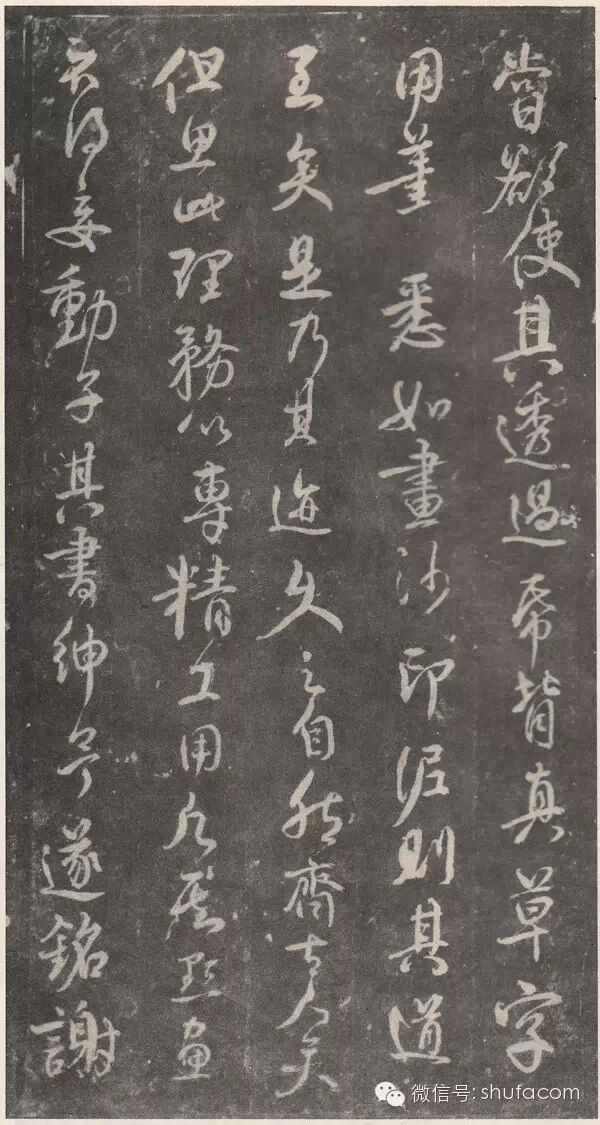 嘗欲使其透過帋背真草字
用筆悉如畫沙印泥則其道
至矣是乃其迹久之自然齊古人矣
但思此理務以專精工用點畫
不得妄動子其書紳予遂銘謝
微信号: shufacom